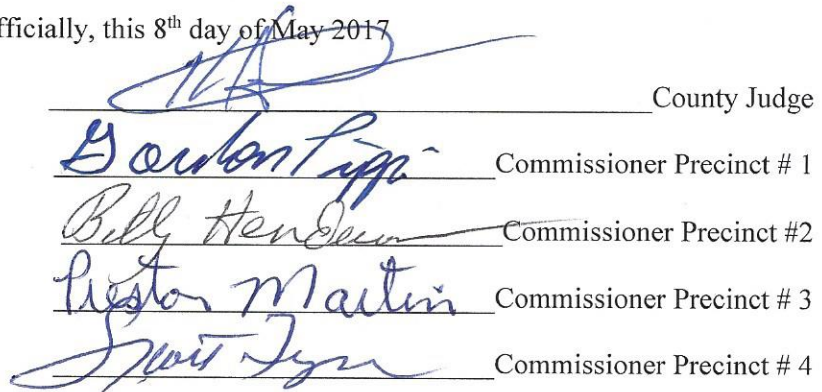 fficially, this 8th day of May 2017
County Judge
Gordon Commissioner Precinct # 1
Billy Henderson Commissioner Precinct #2
Preston Martin Commissioner Precinct # 3
Scott Commissioner Precinct # 4